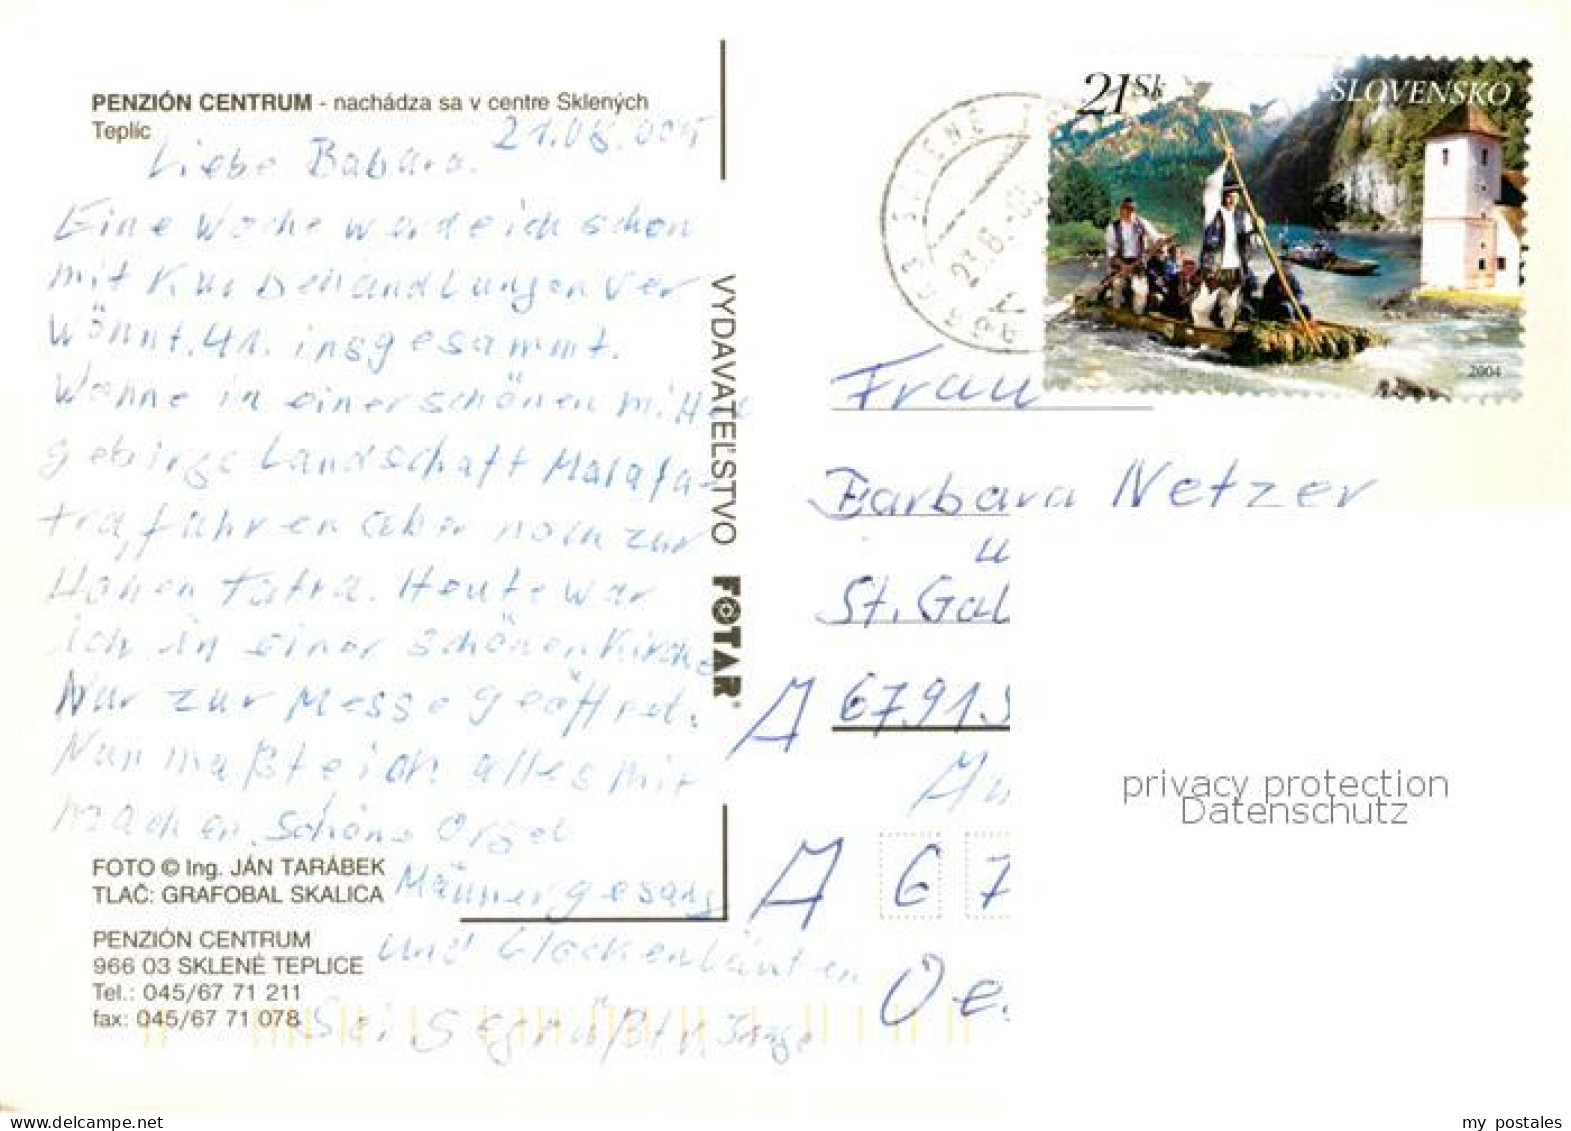 PENZIÓN CENTRUM - nachádza sa v centre Sklených
Teplíc
21.06.005
Liebe Babara.
Eine Woche werde ich schon
mit Kur Behandlungen ver
wönnt. 41. insgesammt.
Wohne in einer schönen Mittel
gebirgs Landschaft Malafa-
tra, fahren aber noch zur
Hohen Tatra. Heute war
ich in einer schönen Kirche
Nur zur Messe geöffnet.
Nun maßte ich alles mit
machen. Schöne Orgel
Männergesang
und Glockenläuten
Sei gegrüßt v. Inge
FOTO © Ing. JÁN TARÁBEK
TLAČ: GRAFOBAL SKALICA
PENZIÓN CENTRUM
966 03 SKLENÉ TEPLICE
Tel.: 045/67 71 211
fax: 045/67 71 078
VYDAVATEĽSTVO FOTAR
966 03 SKLENÉ
23.6.-05
21 Sk
SLOVENSKO
2004
Frau
Barbara Netzer
St. Gal
A 6791 S
A 6 7
Oe.
privacy protection
Datenschutz
www.delcampe.net
my_postales